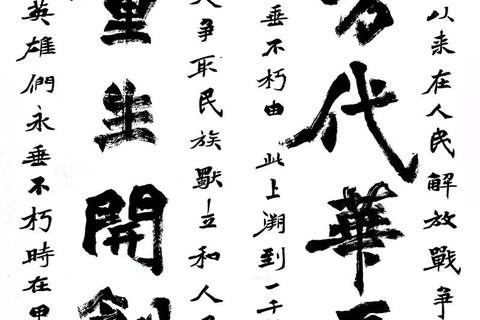 以来在人民解放戰争
代華
垂不朽由此上溯到一千
争取民族獨立和人
重生開創
英雄們永垂不朽時在甲